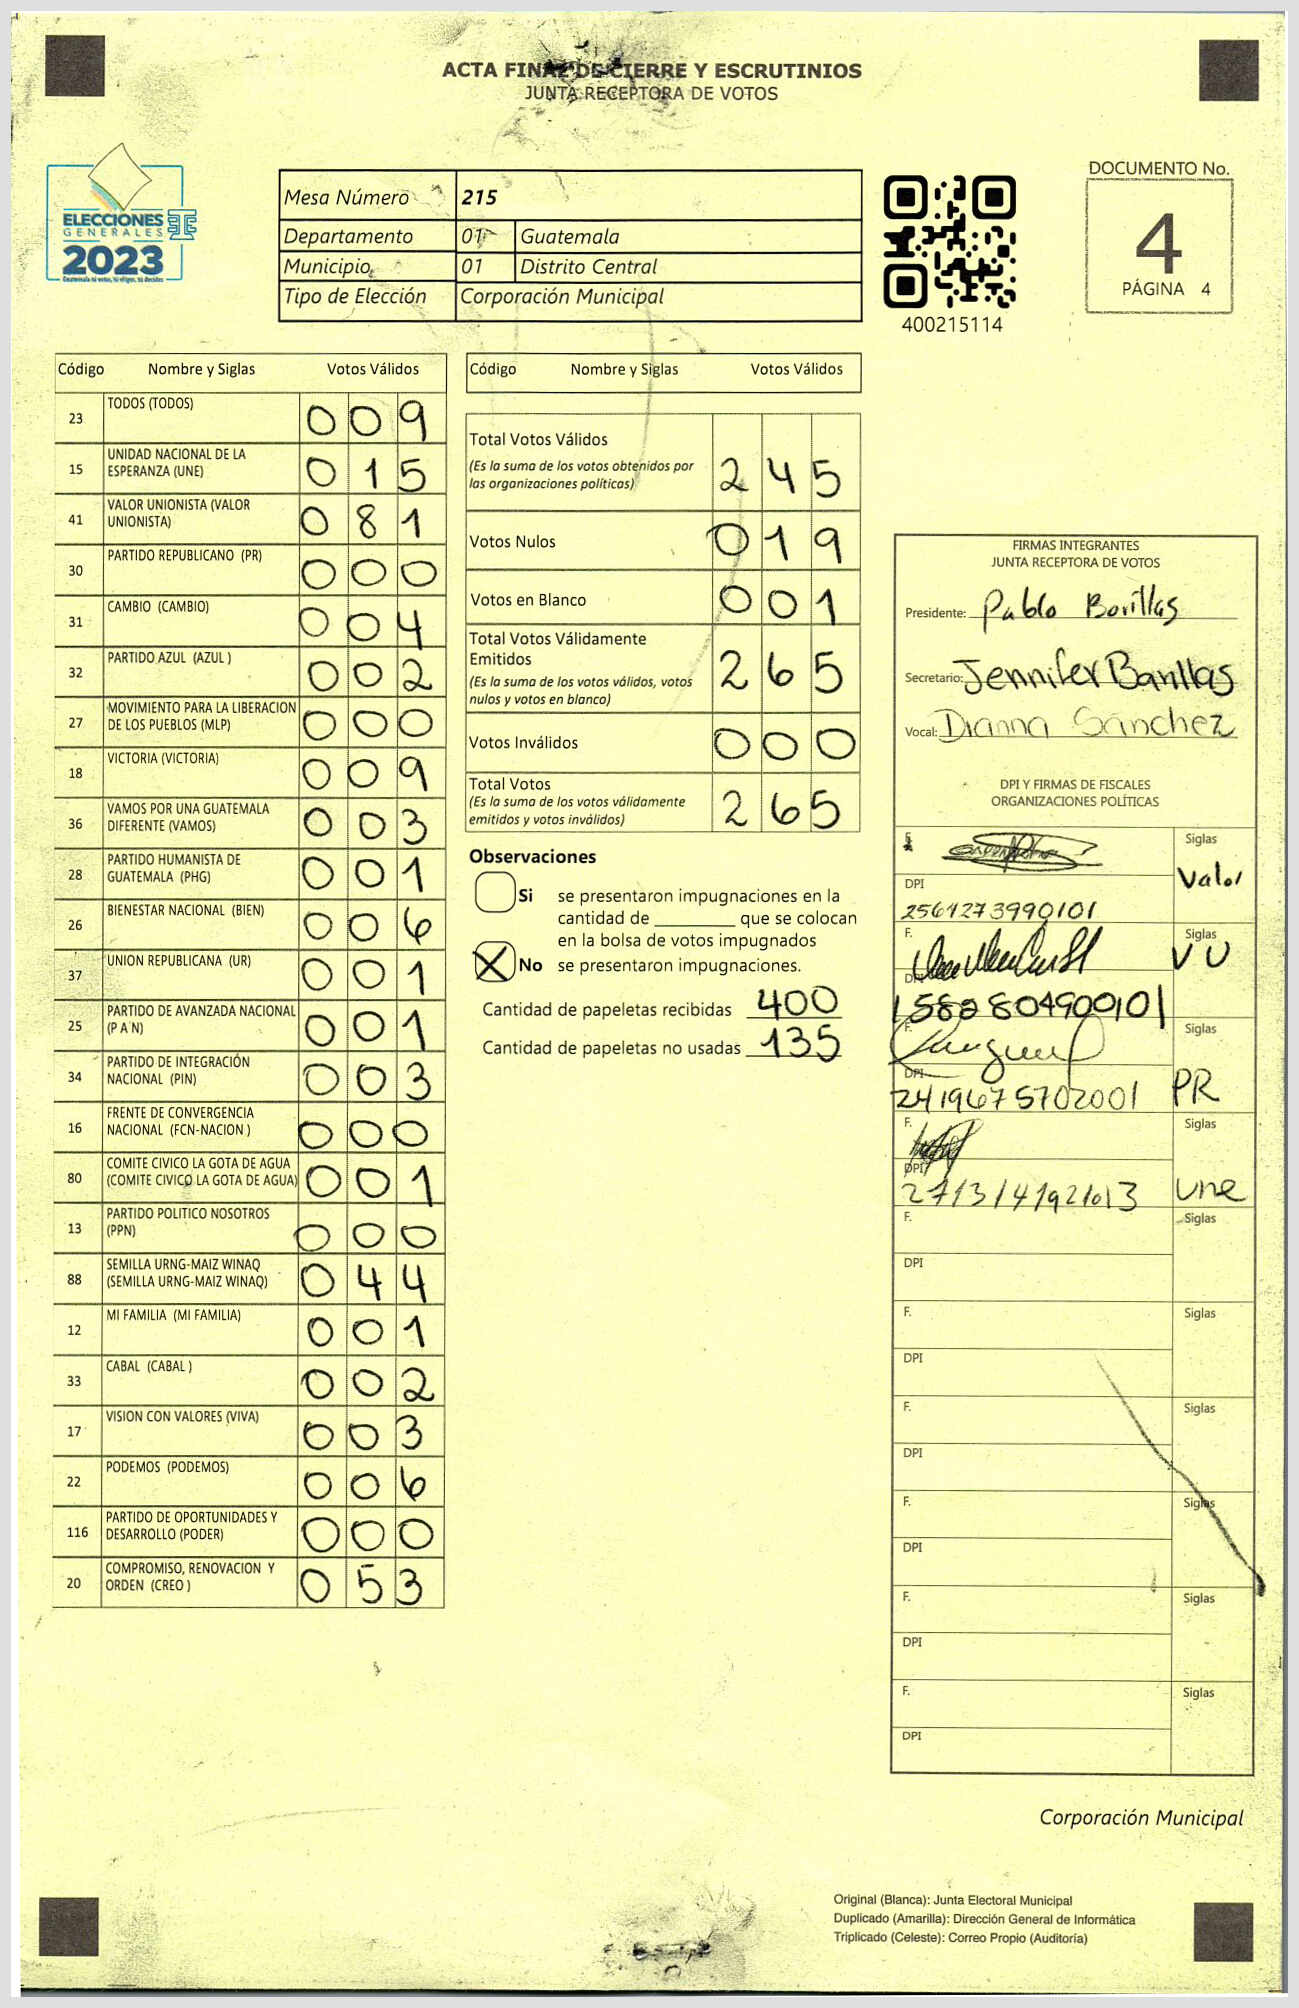 ACTA FINAL DE CIERRE Y ESCRUTINIOS
JUNTA RECEPTORA DE VOTOS
ELECCIONES
GENERALES
2023
Mesa Número 215
Departamento 01 Guatemala
Municipio 01 Distrito Central
Tipo de Elección Corporación Municipal
400215114
DOCUMENTO No.
4
PÁGINA 4
Código Nombre y Siglas Votos Válidos
23 TODOS (TODOS) 0 0 9
15 UNIDAD NACIONAL DE LA ESPERANZA (UNE) 0 1 5
41 VALOR UNIONISTA (VALOR UNIONISTA) 0 8 1
30 PARTIDO REPUBLICANO (PR) 0 0 0
31 CAMBIO (CAMBIO) 0 0 4
32 PARTIDO AZUL (AZUL ) 0 0 2
27 MOVIMIENTO PARA LA LIBERACION DE LOS PUEBLOS (MLP) 0 0 0
18 VICTORIA (VICTORIA) 0 0 9
36 VAMOS POR UNA GUATEMALA DIFERENTE (VAMOS) 0 0 3
28 PARTIDO HUMANISTA DE GUATEMALA (PHG) 0 0 1
26 BIENESTAR NACIONAL (BIEN) 0 0 6
37 UNION REPUBLICANA (UR) 0 0 1
25 PARTIDO DE AVANZADA NACIONAL (P A N) 0 0 1
34 PARTIDO DE INTEGRACIÓN NACIONAL (PIN) 0 0 3
16 FRENTE DE CONVERGENCIA NACIONAL (FCN-NACION ) 0 0 0
80 COMITE CIVICO LA GOTA DE AGUA (COMITE CIVICO LA GOTA DE AGUA) 0 0 1
13 PARTIDO POLITICO NOSOTROS (PPN) 0 0 0
88 SEMILLA URNG-MAIZ WINAQ (SEMILLA URNG-MAIZ WINAQ) 0 4 4
12 MI FAMILIA (MI FAMILIA) 0 0 1
33 CABAL (CABAL ) 0 0 2
17 VISION CON VALORES (VIVA) 0 0 3
22 PODEMOS (PODEMOS) 0 0 6
116 PARTIDO DE OPORTUNIDADES Y DESARROLLO (PODER) 0 0 0
20 COMPROMISO, RENOVACION Y ORDEN (CREO ) 0 5 3
Código Nombre y Siglas Votos Válidos
Total Votos Válidos 2 4 5
(Es la suma de los votos obtenidos por
las organizaciones políticas)
Votos Nulos 0 1 9
Votos en Blanco 0 0 1
Total Votos Válidamente
Emitidos 2 6 5
(Es la suma de los votos válidos, votos
nulos y votos en blanco)
Votos Inválidos 0 0 0
Total Votos 2 6 5
(Es la suma de los votos válidamente
emitidos y votos inválidos)
Observaciones
Si se presentaron impugnaciones en la
cantidad de que se colocan
en la bolsa de votos impugnados
X No se presentaron impugnaciones.
Cantidad de papeletas recibidas 400
Cantidad de papeletas no usadas 135
FIRMAS INTEGRANTES
JUNTA RECEPTORA DE VOTOS
Presidente: Pablo Barillas
Secretario: Jennifer Barillas
Vocal: Dianna Sánchez
DPI Y FIRMAS DE FISCALES
ORGANIZACIONES POLÍTICAS
F. Siglas
Valor
DPI
2561273990101
F. Siglas
VU
DPI
1582804900101
F. Siglas
DPI
2419675702001 PR
F. Siglas
DPI
une
F. Siglas
DPI
F. Siglas
DPI
F. Siglas
DPI
F. Siglas
DPI
F. Siglas
DPI
F. Siglas
DPI
Corporación Municipal
Original (Blanca): Junta Electoral Municipal
Duplicado (Amarilla): Dirección General de Informática
Triplicado (Celeste): Correo Propio (Auditoría)